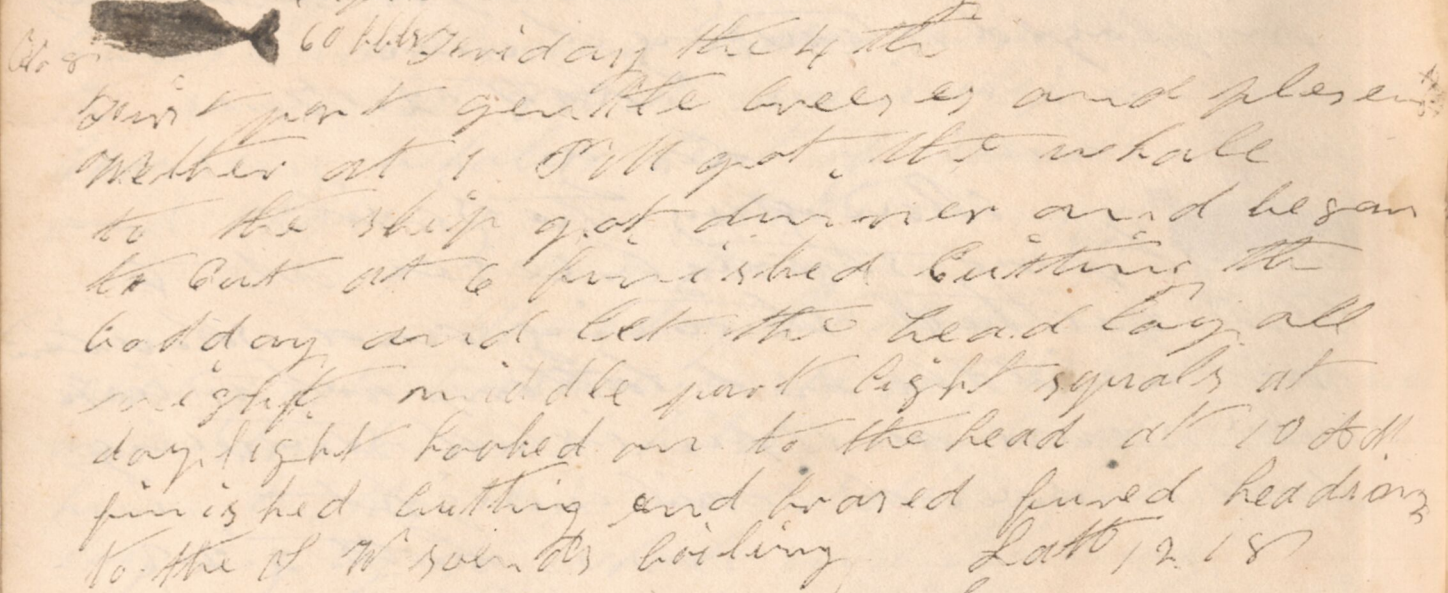 No 8 60 bbls Friday the 4th
First part gentle breeses and plesent
Wether at 1 PM got the whale
to the ship got dinner and began
to Cut at 6 finished Cutting the
bodday and let the head lay all
night middle part light squals at
daylight hooked on to the head at 10 AM
finished Cutting and braced fured headson
to the S W boiling Latt 12 18